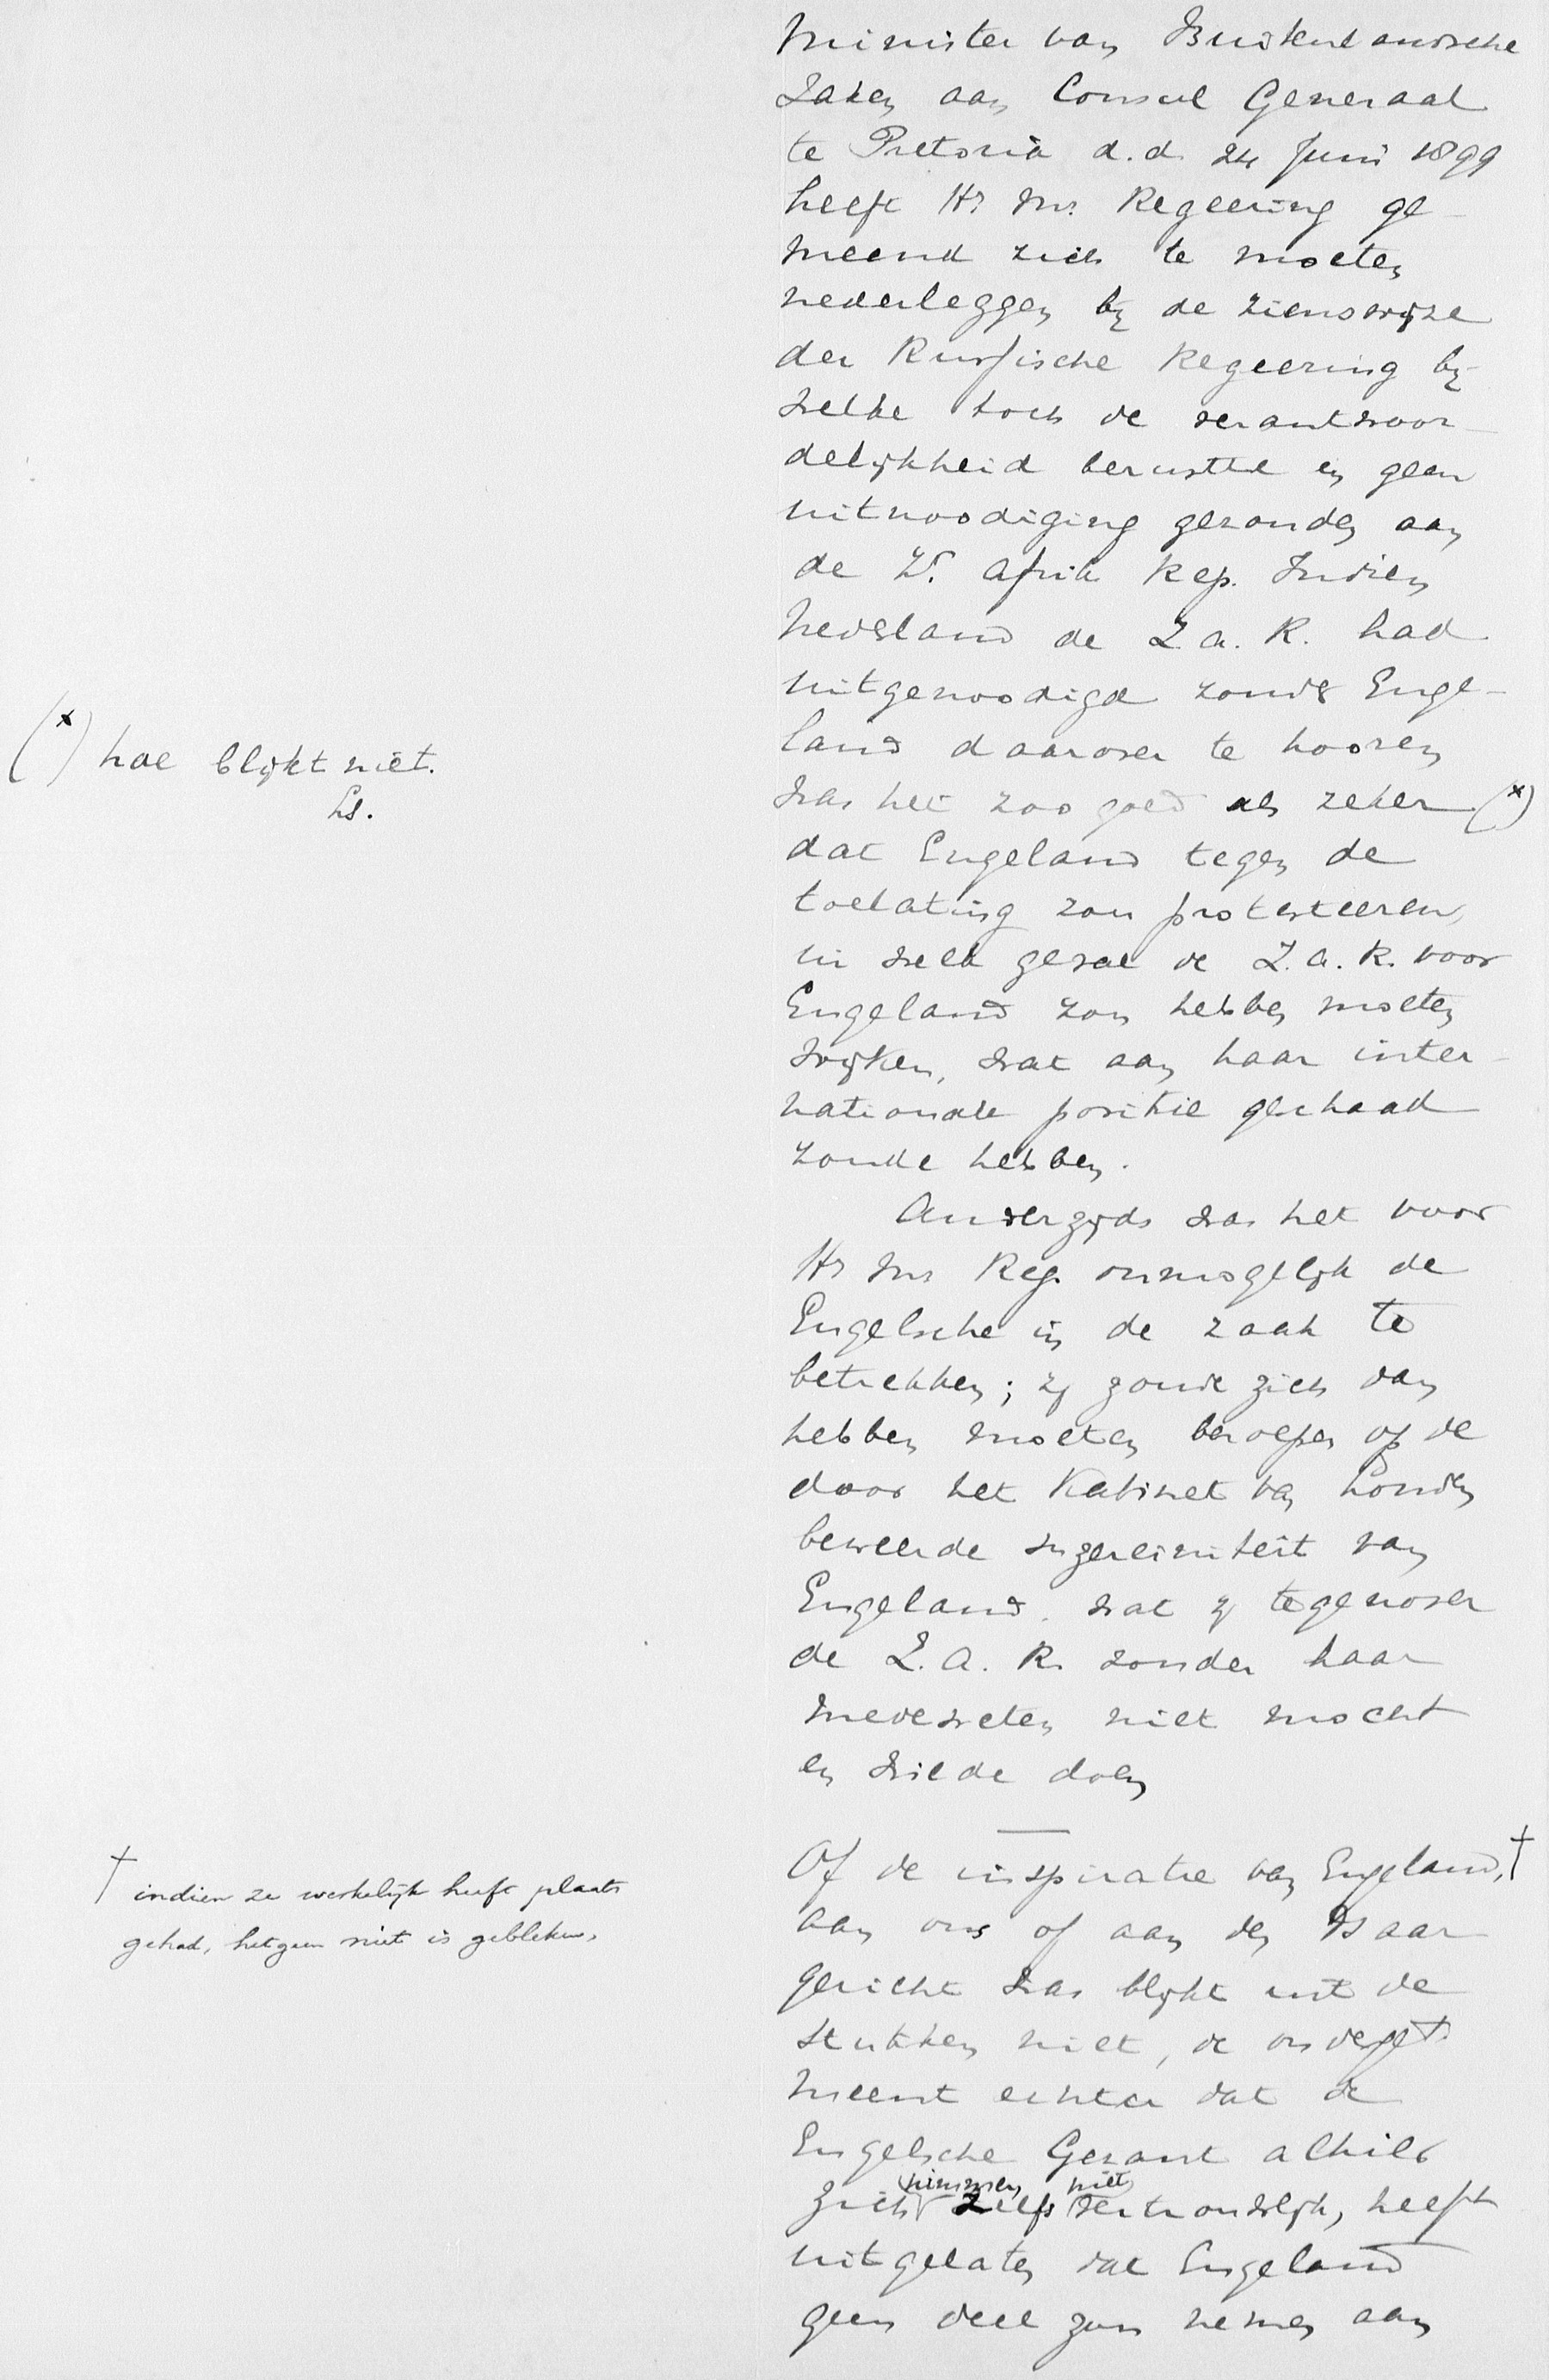 Minister van Buitenlandsche
Zaken aan Consul Generaal
te Pretoria d.d. 24 Juni 1899
heeft Hr Ms. Regeering ge-
meend zich te moeten
nederleggen bij de zienswijze
der Russische Regeering bij
welke toch de verantwoor-
delijkheid berustte en geen
uitnoodiging gezonden aan
de Z. Afrik Rep. Indien
Nederland de Z.A.R. had
uitgenoodigd zonder Enge-
land daarover te hooren
(x) hoe blijkt niet.
was het zoo goed als zeker (x)
dat Engeland tegen de
toelating zou protesteeren,
in welk geval de Z.A.R. voor
Engeland zou hebben moeten
wijken, wat aan haar inter-
nationale positie geschaad
zoude hebben.
Anderzijds was het voor
Hr Ms Reg. onmogelijk de
Engelsche in de zaak te
betrekken; zij zoude zich dan
hebben moeten beroepen op de
door het Kabinet van Londen
beweerde suzereiniteit van
Engeland. wat zij tegenover
de Z.A.R. zonder haar
medeweten niet mocht
en wilde doen
Of de inspiratie van Engeland, †
† indien ze werkelijk heeft plaats
gehad, hetgeen niet is gebleken,
aan ons of aan den Tsaar
gericht was blijkt uit de
stukken niet, de ondergett.
meent echter dat de
Engelsche Gezant alhier
zich nimmer, zelfs niet vertrouwelijk, heeft
uitgelaten dat Engeland
geen deel zou nemen aan